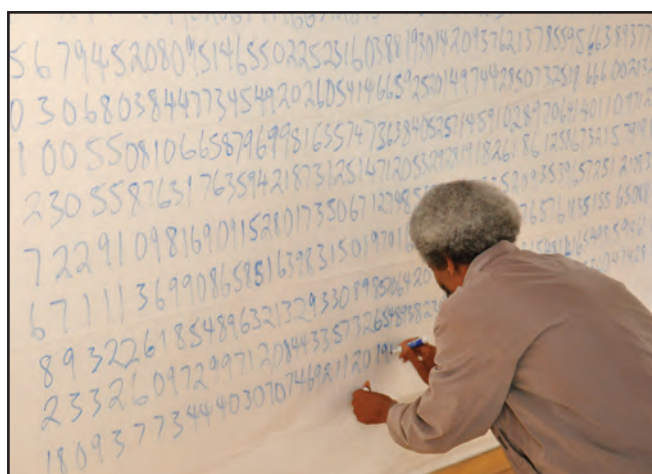 5679452080951465502252316038819301420937621378559566389377
030680384477345492026054146659252014974428507325186660021
10055081066587969981635747363840525714591028970641401109712
2305587631763594218731251471205329281918261861258673215791
72291098169091152801735067127485 5209353965725121083
671113699086585163983150197016 7657618351556508
89322618548963213293308985706420 8141654985946
233260972997120844335732654893823
180937734440307074692112019